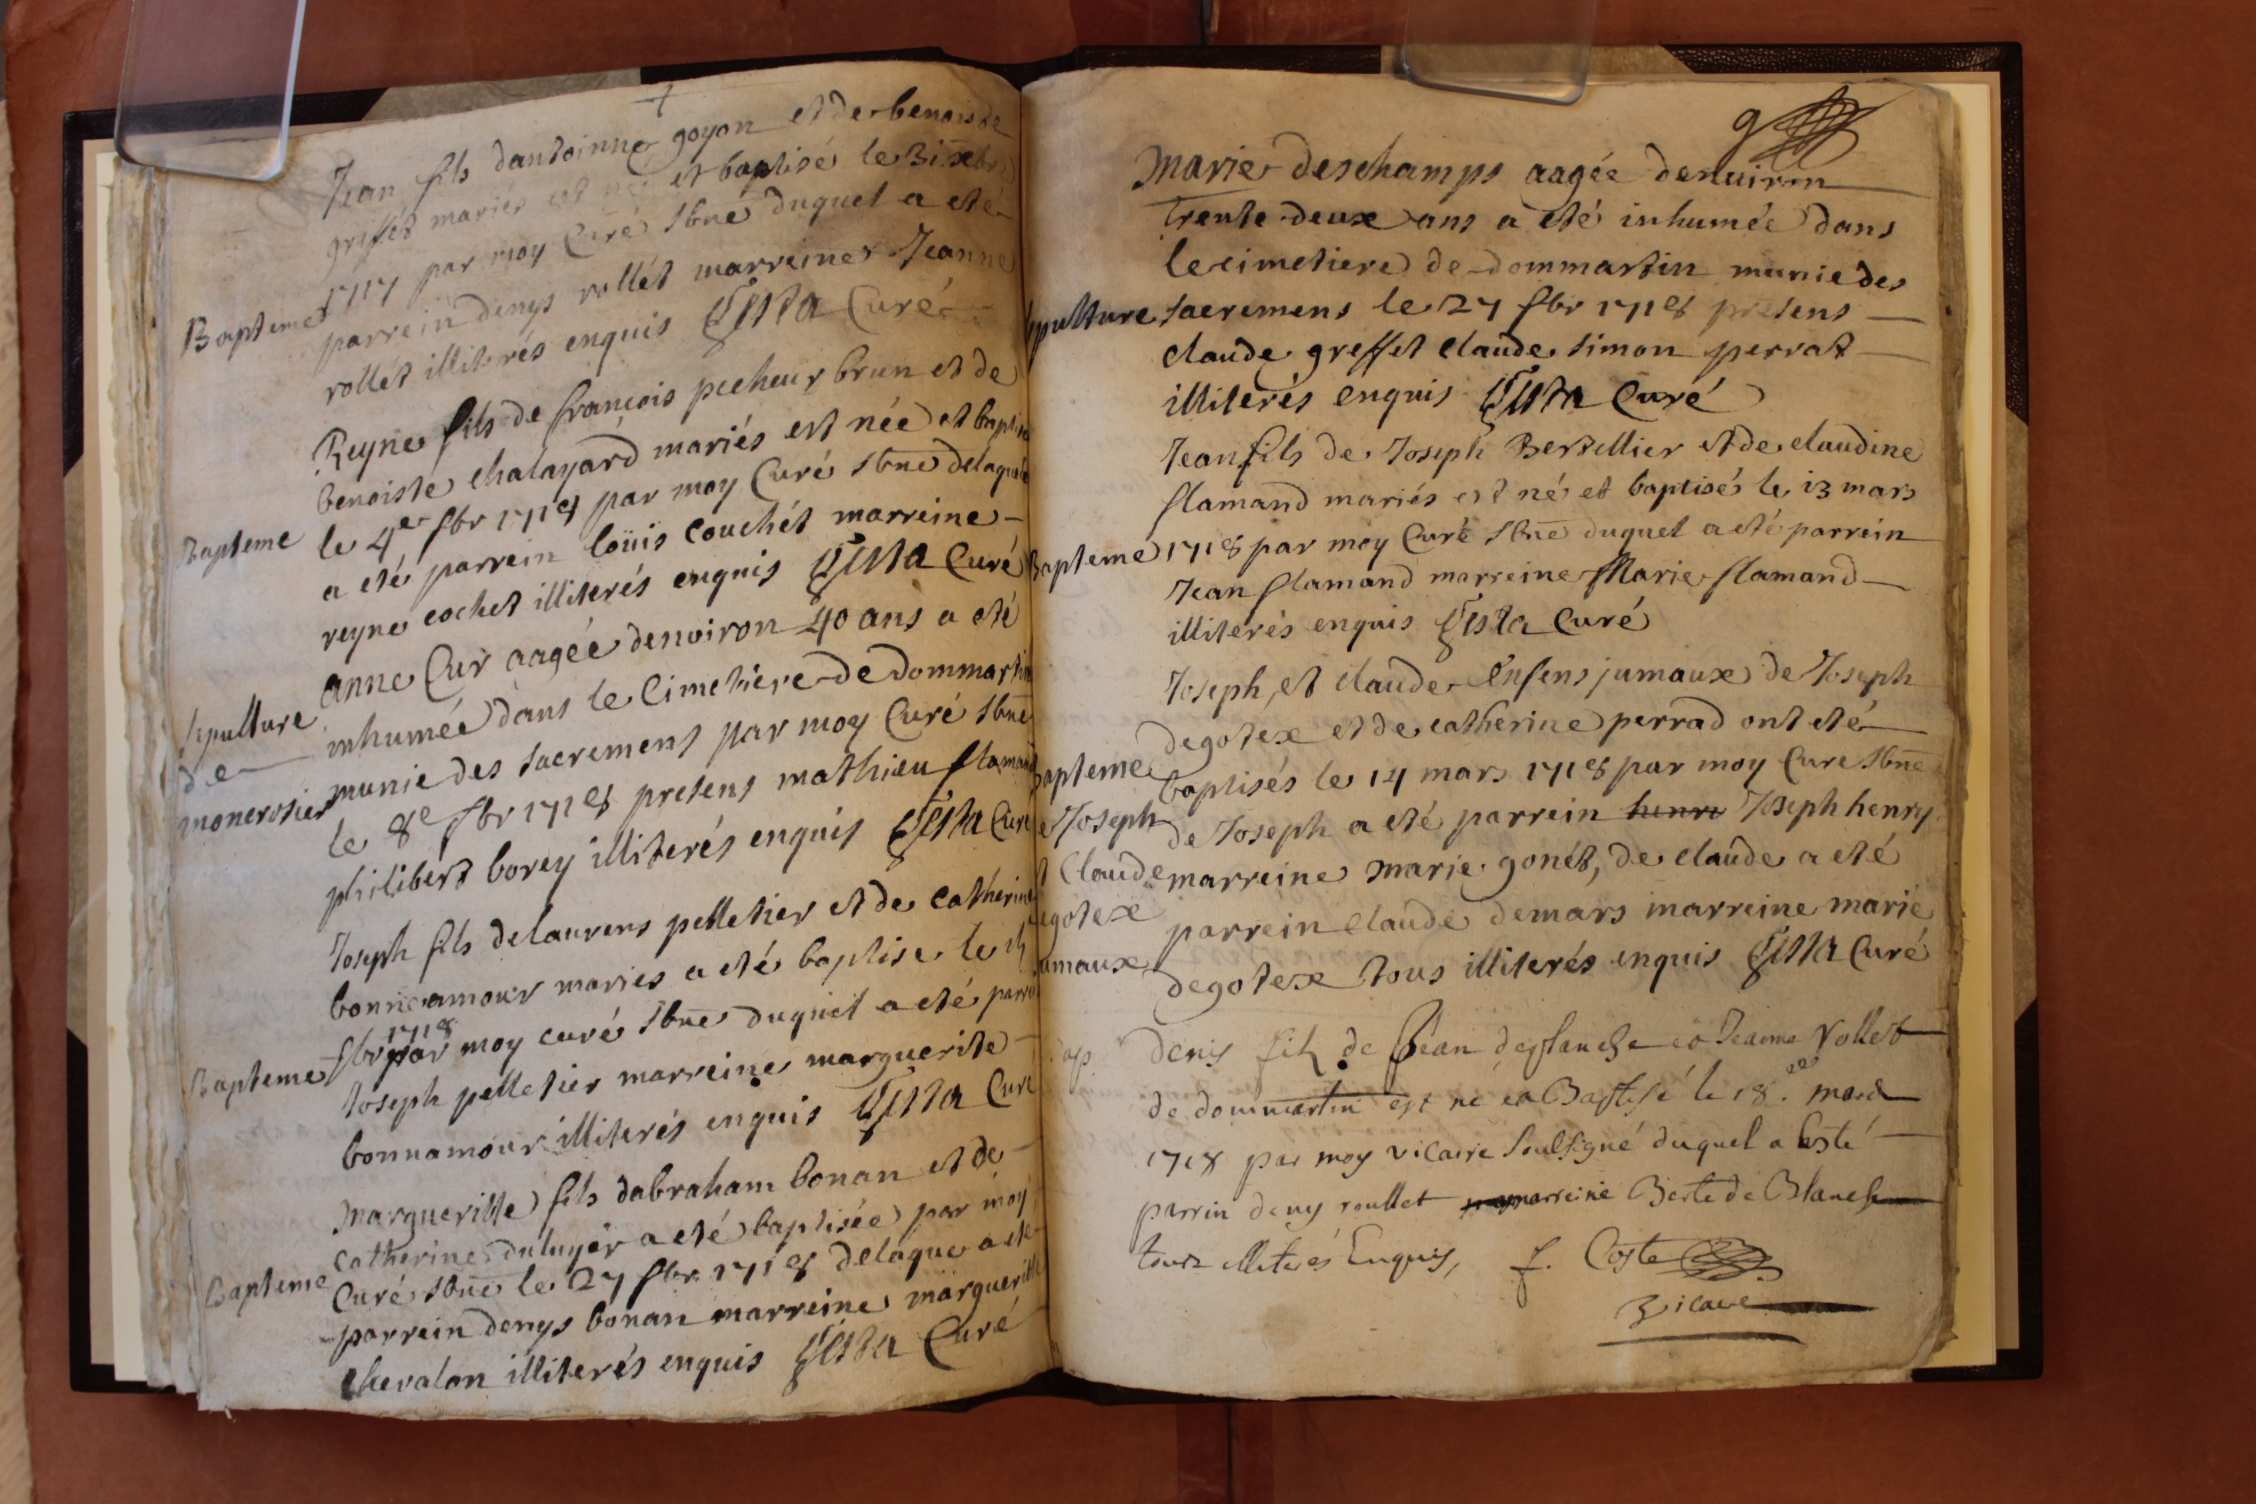 Jean fils dantoinne goyon et de benoiste
griffét mariés est né et baptisé le 31 xbre
1717 par moy Curé sbne duquel a eté
Bapteme parrein denys rollét marreine Jeanne
rollét illiterés enquis Gista Curé
Reyne fils de francois pecheur brun et de
benoiste chalayard mariés est née et baptisée
le 4er fbr 1718 par moy Curé sbne delaquelle
Bapteme a eté parrein loüis couchét marreine
reyne cochet illiterés enquis Gista Curé
anne Cur aagée denviron 40 ans a eté
Sepulture inhumée dans le Cimetiere de Dommartin
de munie des sacremens par moy Curé sbne
monerosier le 8e fbr 1718 presens mathieu flamand
philibert borey illiterés enquis Gista Curé
Joseph fils delaurens pelletier et de catherine
bonneamour mariés a eté baptise le
fbr 1718 par moy curé sbne duquel a eté parrein
Bapteme Joseph pelletier marreine marguerite
bonnamour illiterés enquis Gista Curé
Margueritte fils dabraham bonan et de
catherine duluyer a eté baptisée par moy
Bapteme Curé sbne le 27 fbr 1718 delaque a eté
parrein denys bonan marreine margueritte
chevalon illiterés enquis Gista Curé
9
Marie deschamps aagée denviron
trente deux ans a eté inhumée dans
le cimetiere de dommartin munie des
sepulture sacremens le 27 fbr 1718 presens
claude greffet claude simon perrat
illiterés enquis Gista Curé
Jean fils de Joseph Bertellier et de claudine
flamand mariés est né et baptisés le 13 mars
Bapteme 1718 par moy Curé sbne duquel a eté parrein
Jean flamand marreine Marie flamand
illiterés enquis Gista Curé
Joseph et claude Enfens jumaux de Joseph
degotex et de catherine perrad ont eté
Bapteme baptisés le 14 mars 1718 par moy Cure sbne
de Joseph de Joseph a eté parrein henri Joseph henry
et Claude marreine marie gonét, de claude a eté
degotex parrein claude demars marreine marie
jumaux degotex tous illiterés enquis Gista Curé
bap denis fils de Jean desflanche et Jeanne Vollet
de dommartin est né et Baptisé le 18. mars
1718 par moy vicaire soulsigné duquel a esté
parrin deny roullet marreine Berte de Blanche
tous illiterés Enquis, f. Coste
Vicaire